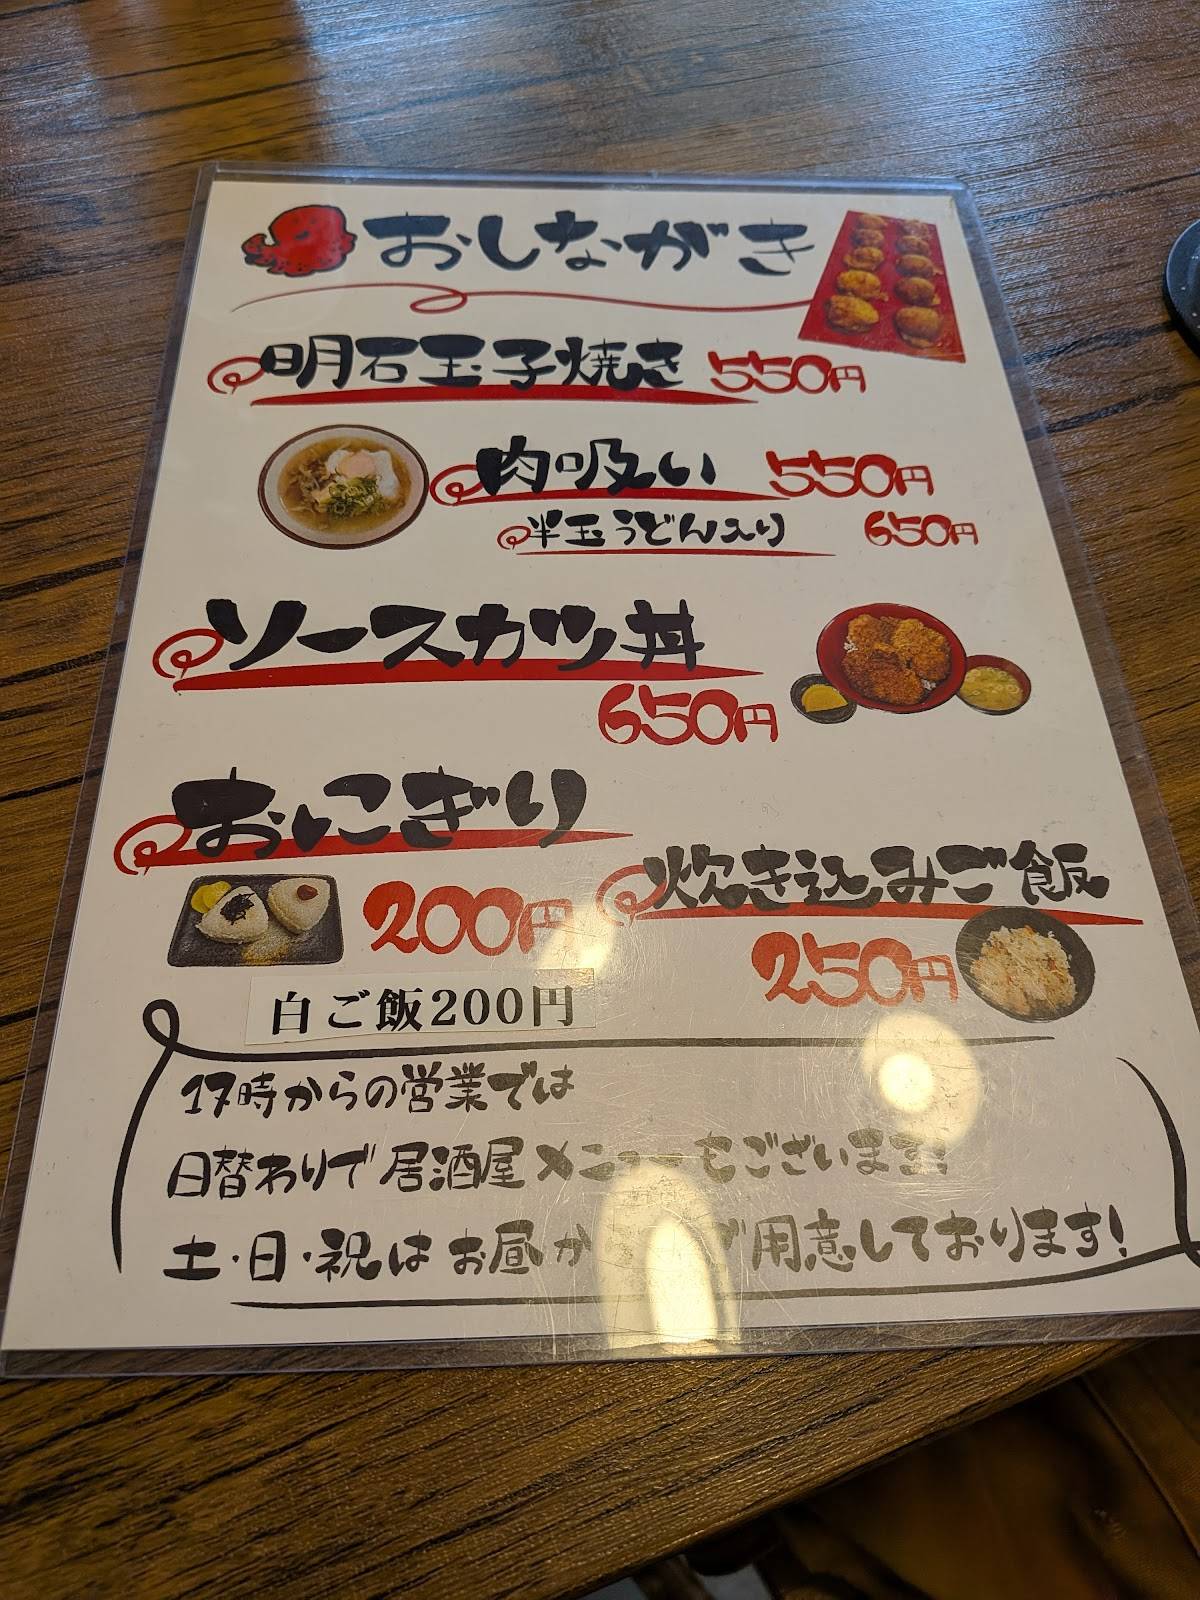 おしながき
明石玉子焼き 550円
肉吸い 550円
半玉うどん入り 650円
ソースカツ丼
650円
おにぎり
200円
炊き込みご飯
250円
白ご飯200円
17時からの営業では
日替わりで居酒屋メニューもございます!
土・日・祝はお昼か ご用意しております!